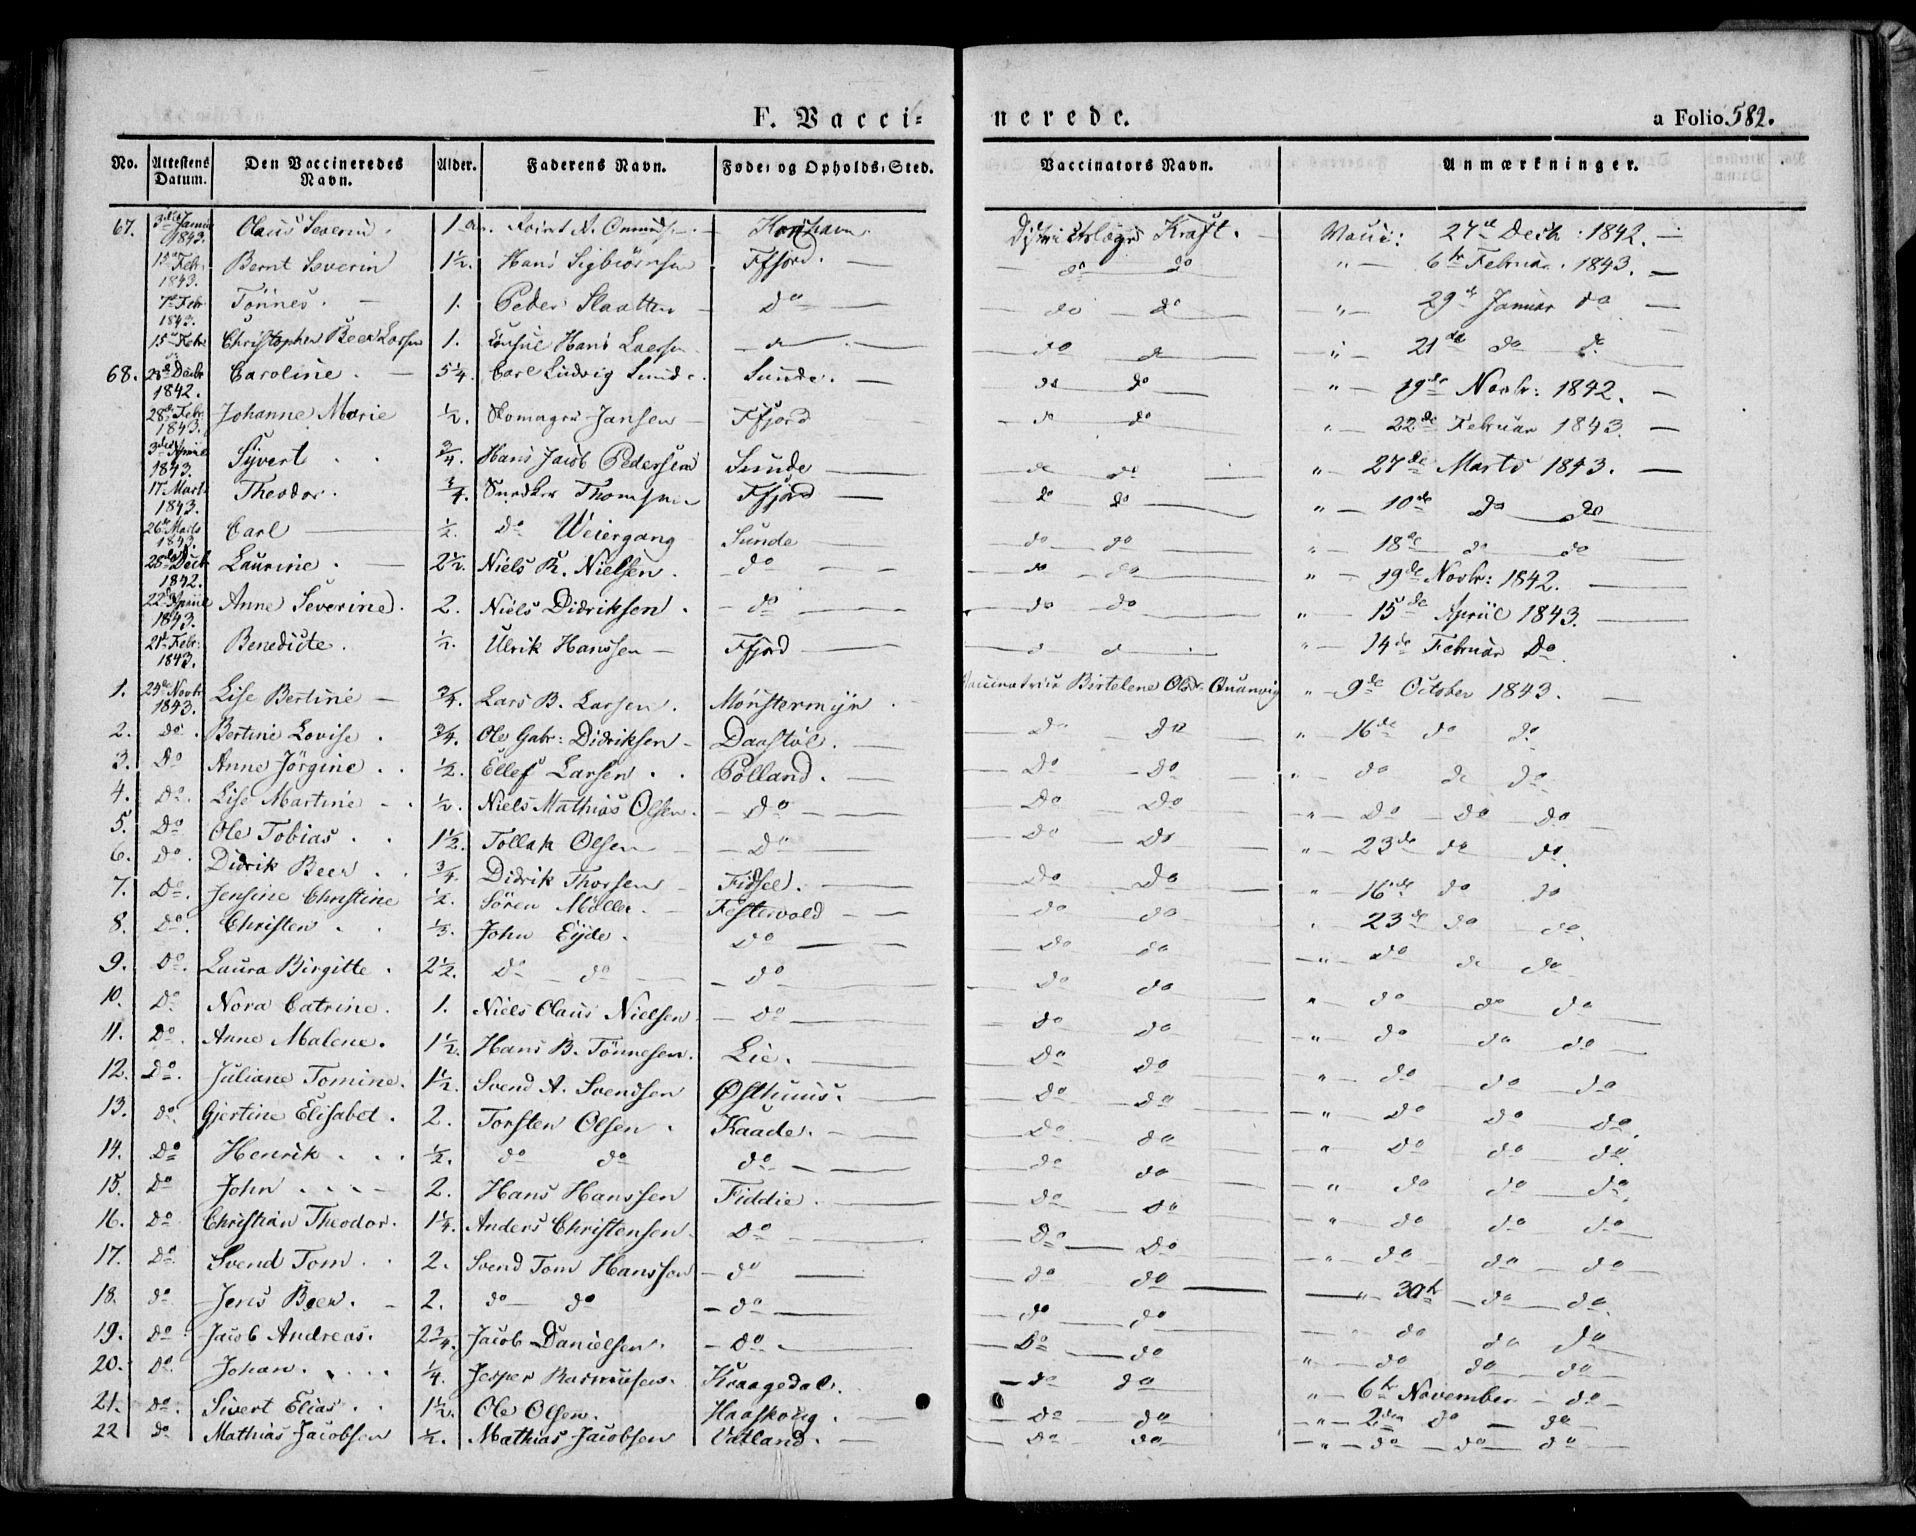 F. Vacci-
nerede.
a Folio 582.
No. Attestens Datum. Den Vaccineredes Navn. Alder. Faderens Navn. Føde- og Opholds-Sted. Vaccinators Navn. Anmærkninger.
67. 1843. Olaus Severin. 1 Districtslæge Kraft. Vacci: 27de Decb: 1842.
Febr: 1843. Bernt Severin 1½. Hans Sigbiörnsen Ffjord. do do " 6te Februar. 1843.
7de Febr 1843. Tönnes. 1. Peder Slaatten Do do do " 29de Januar do
15 Febr Christopher Beer Larsen 1. Consul Hans Larsen do do " 21de do do
68. Decbr 1842. Caroline. 5¼. Carl Ludvig Sunde. Sunde. do do " 19de Novbr: 1842.
28de Febr. 1843. Johanne Marie ½. Skomager Jansen Ffjord do do " 22de Februar 1843.
3die April 1843. Sÿvert ¾. Hans Jacob Pedersen Sunde do do " 27de Marts 1843.
17 Mart. 1843. Theodor. ¾. Snedker Thomsen Ffjord do do " 10de do do
26de Marts 1843. Carl ½. do Weiergang Sunde do do " 18de do do
28de Decb 1842. Laurine. 2½. Niels R. Nielsen. do do do " 19de Novbr: 1842.
22de April 1843. Anne Severine. 2. Niels Didriksen. do do do " 15de Apriil 1843.
21de Febr: 1843. Benedicte. ½. Ulrik Hanssen Ffjord do do " 14de Februar Do
1. 24de Novbr 1843. Lise Bertine ¾. Lars B. Larsen. Mönstermÿr Birtelene " 9de October 1843.
2. do. Bertine Lovise. ¾. Ole Gabr: Didriksen Daastöl. do do " 16de do do
3. Do Anne Jörgine. ½. Ellef Larsen. Pölland. Do Do " do do do
4. Do. Lise Martine ½. Niels Mathias Olsen. Do Do Do " Do Do Do
5. Do Ole Tobias. 1½. Tollak Olsen Do Do Do " 23de do do.
6. Do. Didrik Beer. ¾. Didrik Thorsen Fidsel. Do Do " 16de do do
7. Do. Jensine Christine ½. Sören Möller. Festervold do do " 23de do do.
8. Do. Christen. ⅓. John Eÿde. Do Do do " do do do
9. Do. Laura Birgitte. 2½. Do do do Do do " do do do
10. Do Nora Catrine. 1. Niels Claus Nielsen Do do do " do do do
11. Do. Anne Malene. 1½. Hans B. Tönnesen. Lie. Do do " do do do
12. Do. Juliane Tomine. 1½. Svend A. Svendsen Østhuus. Do do " do do do.
13. do. Gjertine Elisabet. 2. Torsten Olsen. Kaade. Do do " Do do do.
14. Do Henrik. ½. do do do do do " do do do.
15. Do John. 2. Hans Hanssen Fiddie. Do do " do do do
16. Do Christian Theodor. 1¼. Anders Christensen. Do Do Do " do do do
17. Do. Svend Tom. 2. Svend Tom Hanssen do do do " 30te do do.
18. do Jens Beer. 2. do do do do do do do do
19. do. Jacob Andreas. 2¾. Jacob Danielsen. Do. Do do " do do do
20. Do. Johan. ¼. Jesper Rasmussen. Kraagedal. do do " 6te November do
21. do. Sivert Elias. 1½. Ole Olsen. Do do " do do
22 do Mathias Jacobsen ½. Mathias Jacobsen Vatland. do do " do do do